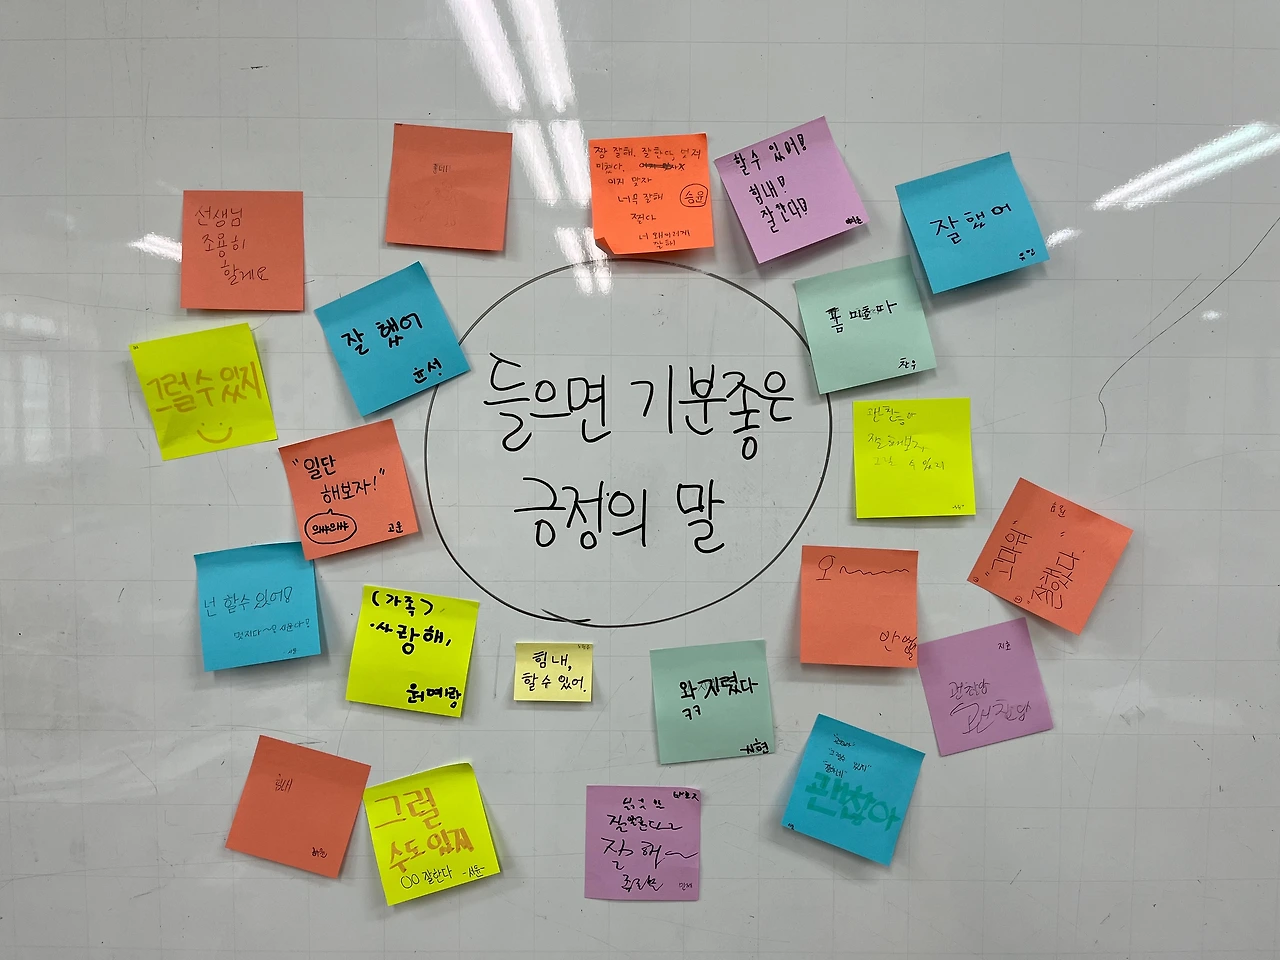 들으면 기분좋은
긍정의 말
선생님
조용히
할게요
힘내!
짱 잘해, 잘한다, 멋져
미쳤다,
이지 맞자
너무 잘해
승윤
쩐다
너 왜이러게
잘해
할수 있어!
힘내!
잘한다!
잘했어
잘했어
윤성
폼 미쳤다
찬우
그럴수있지
"일단
해보자!"
으쌰으쌰
고운
괜찮아
잘해보자
그럴 수 있지
"고마워"
"좋았다."
넌 할수있어!
멋지다~
(가족)
사랑해,
원예랑
힘내,
할수있어.
와 지렸다
ㅋㅋ
시현
오
지호
괜찮아
괜찮아
힘내
그럴
수도있지
OO 잘한다 -서윤-
잘한다
잘해~
"그럴수 있지"
괜찮아